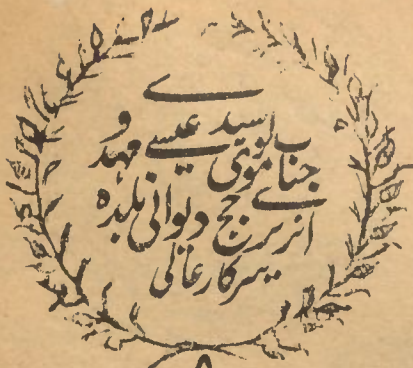 جناب مولوی سید عیسے مہدوی
آنریری جج دیوانی بلدہ
سرکار عالی